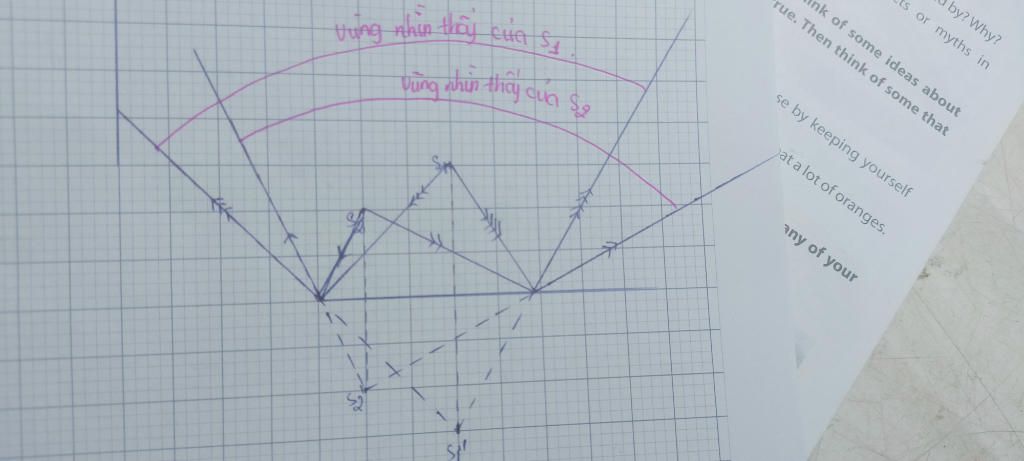 vùng nhìn thấy của S1.
vùng nhìn thấy của S2
S1
S2
S1'
d by? Why?
cts or myths in
ink of some ideas about
rue. Then think of some that
se by keeping yourself
at a lot of oranges.
any of your